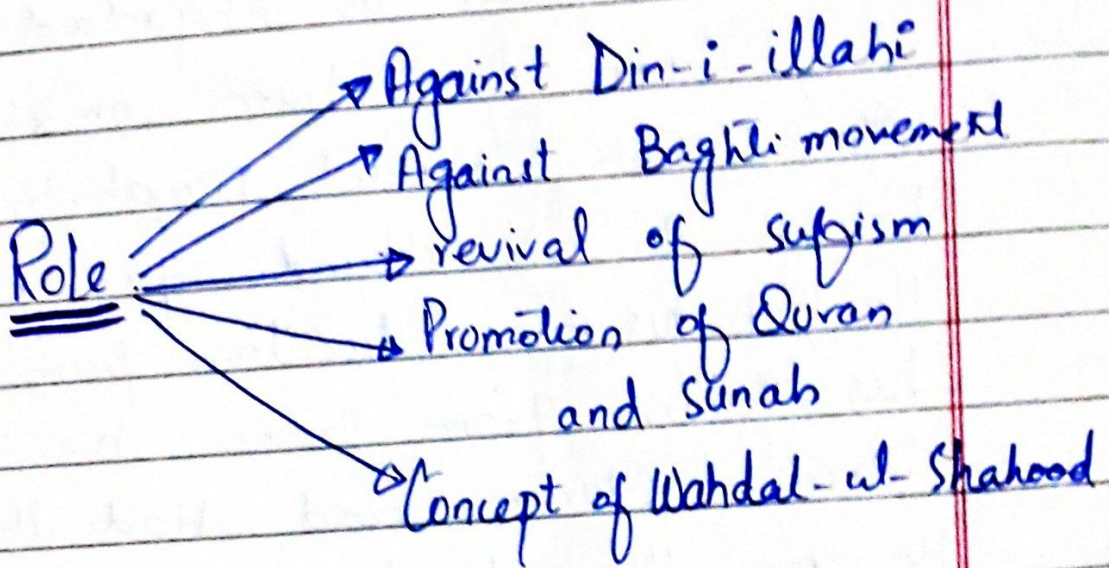 Against Din-i-illahi
Against Baghti movement
Role
revival of sufism
Promotion of Quran
and Sunah
Concept of Wahdat-ul-Shahood